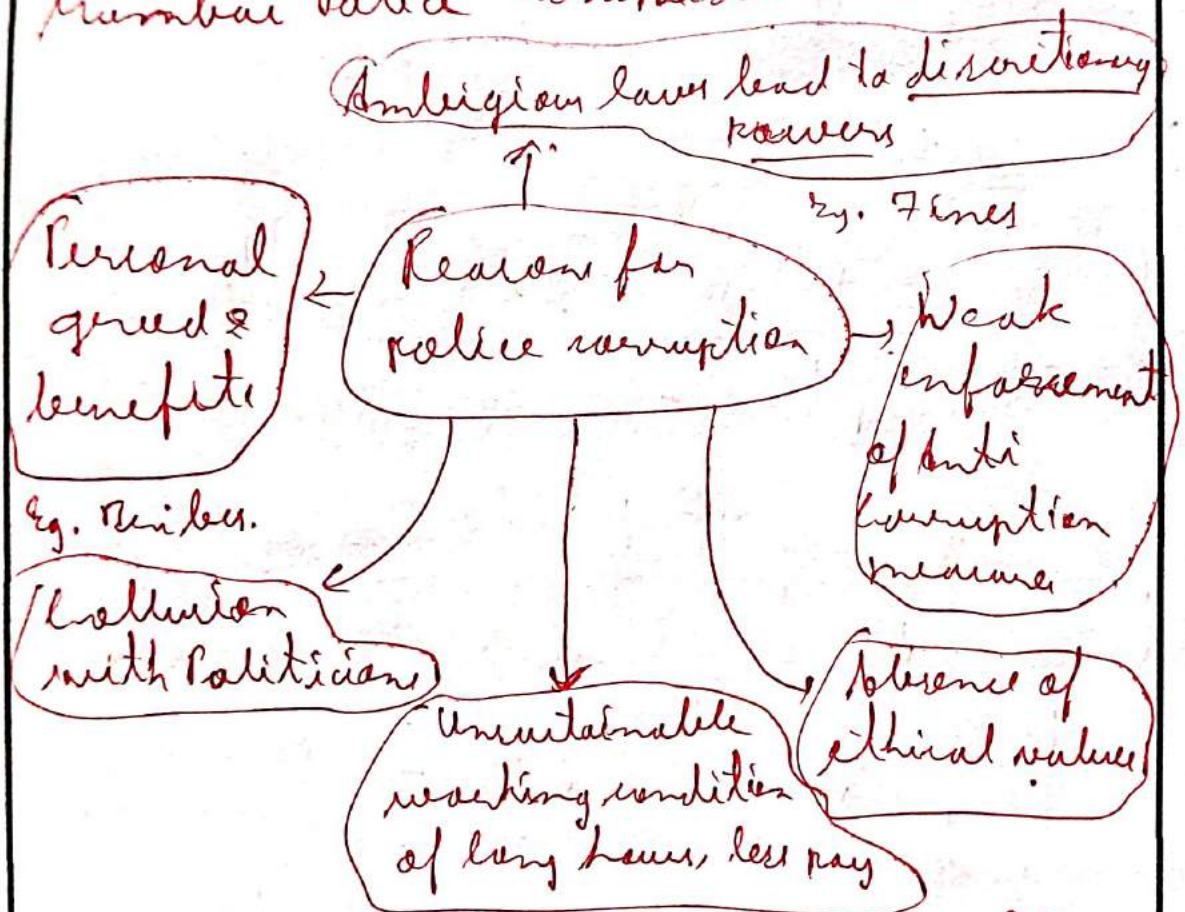 Mumbai
Ambigious laws lead to discretionary
powers
Eg. Fines
Personal
greed &
benefits
Eg. Bribes.
Reasons for
police corruption
Weak
enforcement
of Anti
Corruption
measures
Collusion
with Politicians
Unsustainable
working condition
of long hours, less pay
Absence of
ethical values